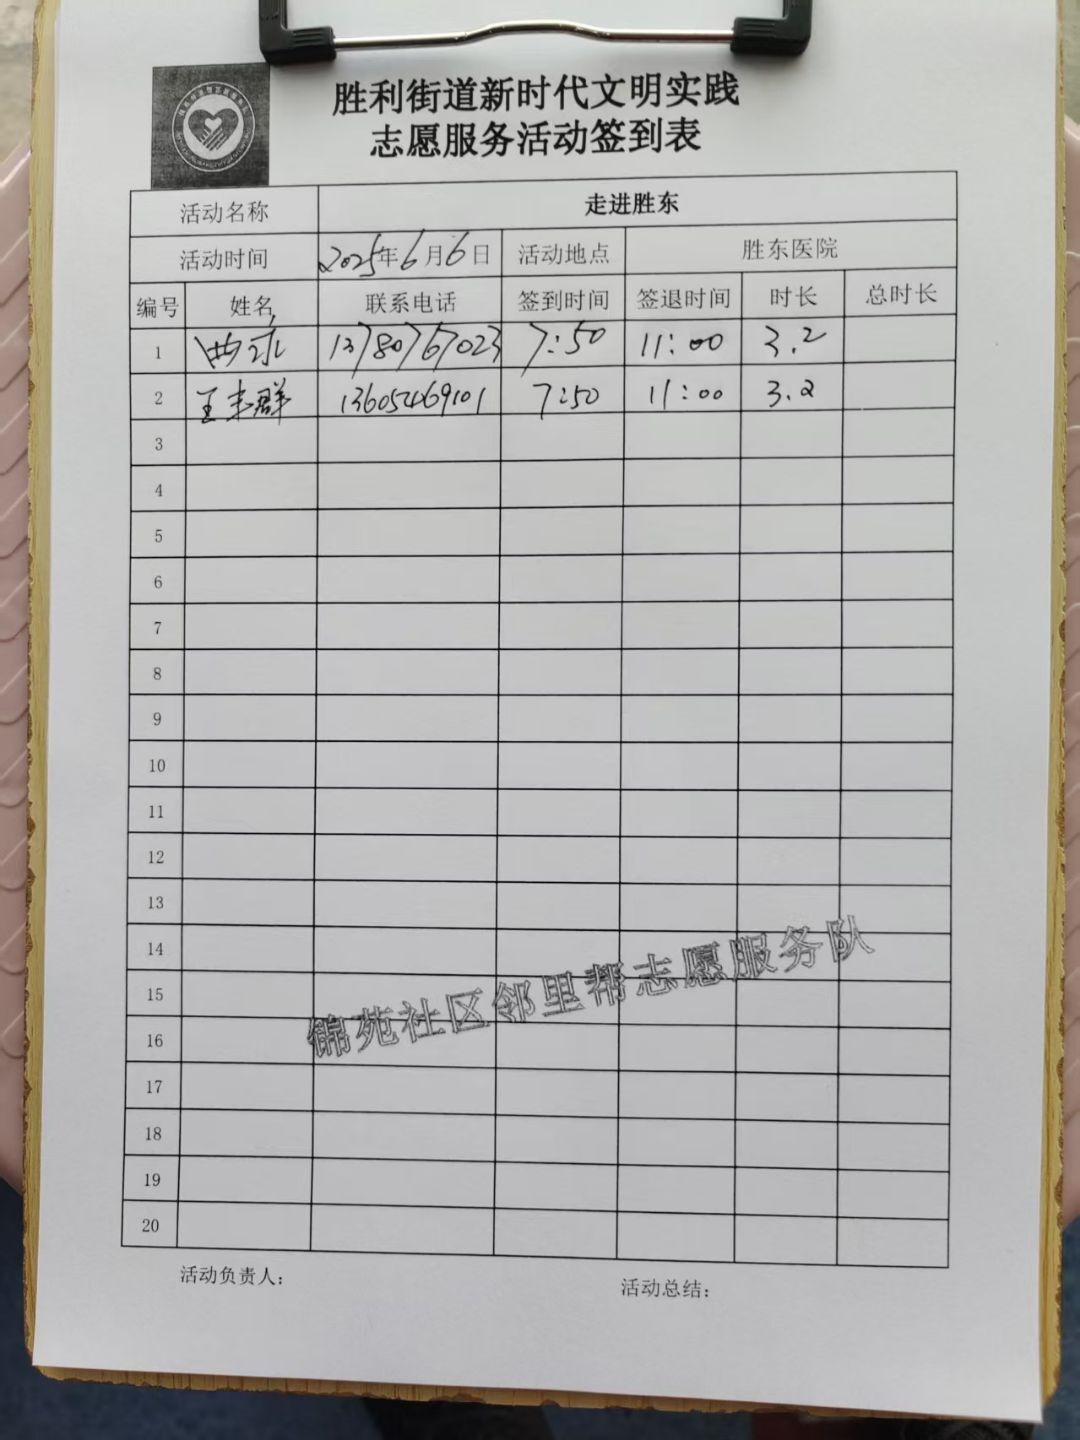 胜利街道新时代文明实践
志愿服务活动签到表
活动名称 走进胜东
活动时间 2025年6月6日 活动地点 胜东医院
编号 姓名 联系电话 签到时间 签退时间 时长 总时长
1 13780767023 7:50 11:00 3.2
2 王 群 13605469101 7:50 11:00 3.2
3
4
5
6
7
8
9
10
11
12
13
14
15
16
17
18
19
20
锦苑社区邻里帮志愿服务队
活动负责人： 活动总结：